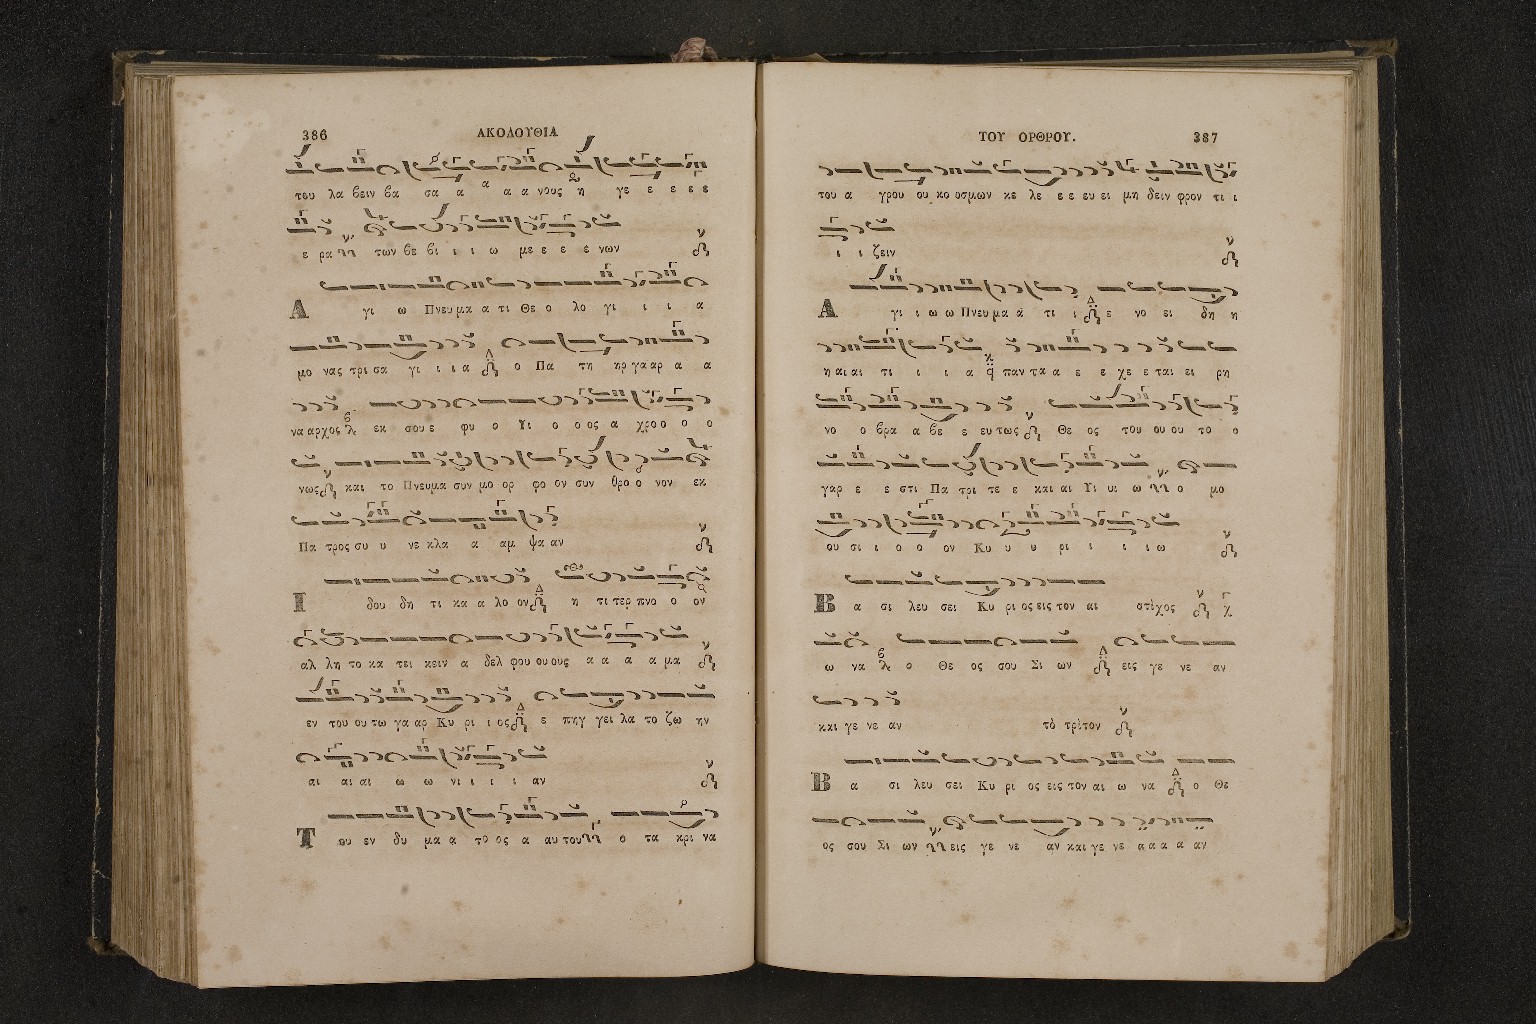 386
ΑΚΟΛΟΥΘΙΑ
του λα βειν βα σα α α α α νους η γε ε ε ε ε
ε ρα των βε βι ι ι ω με ε ε ε νων
Α γι ω Πνευ μα α τι Θε ο λο γι ι ι α
μο νας τρι σα γι ι ι α ο Πα τη ηρ γα αρ α α
να αρχος εκ σου ε φυ ο Υι ο ο ος α χρο ο ο ο
νως και το Πνευμα συν μο ορ φο ον συν θρο ο νον εκ
Πα τρος συ υ νε κλα α αμ ψα αν
Ι δου δη τι κα α λο ον η τι τερ πνο ο ον
αλ λη το κα τει κειν α δελ φου ου ους α α α α μα
εν του ου τω γα αρ Κυ ρι ι ος ε πηγ γει λα το ζω ην
αι αι αι ω ω νι ι ι ι αν
Του εν δυ μα α το ος α αυ του ο τα κρι να
ΤΟΥ ΟΡΘΡΟΥ.
387
του α γρου ου κο οσμων κε λε ε ε ευ ει μη δειν φρον τι ι
ι ι ζειν
Α γι ι ω ω Πνευ μα α τι ι ε νο ει δη η
η αι αι τι ι ι α παν τα α ε ε χε ε ται ει ρη
νο ο βρα α βε ε ευ τως Θε ος του ου ου το ο
γαρ ε ε στι Πα τρι τε ε και αι Υι υι ω ο μο
ου σι ι ο ο ον Κυ υ υ ρι ι ι ι ω
Β α σι λευ σει Κυ ρι ος εις τον αι στίχος
ω να ο Θε ος σου Σι ων εις γε νε αν
και γε νε αν τὸ τρίτον
Β α σι λευ σει Κυ ρι ος εις τον αι ω να ο Θε
ος σου Σι ων εις γε νε αν και γε νε α α α α αν